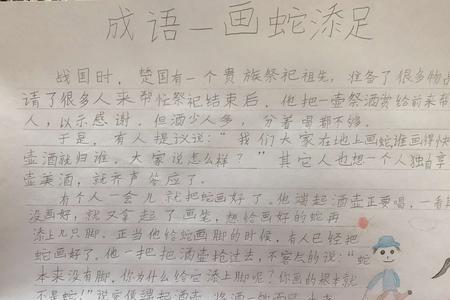 成语—画蛇添足
战国时，楚国有一个贵族祭祀祖先，准备了很多物品
请了很多人来帮忙祭祀结束后，他把一壶祭酒赏给前来帮
人，以示感谢，但酒少人多，分着喝都不够。
于是，有人提议说："我们大家在地上画蛇谁画得快
壶酒就归谁，大家说怎么样？"其它人也想一个人独自享
壶美酒，就齐声答应了。
有个人一会儿就把蛇画好了。他端起酒壶正要喝，一看
没画好，就又拿起了画笔，想给画好的蛇再
添上几只脚。正当他给蛇画脚的时候，有人已经把
蛇画好了，他一把把酒壶抢过去，不客气的说："蛇
本来没有脚，你为什么给它添上脚呢？你画的根本就
不是蛇！"说完便端起酒壶